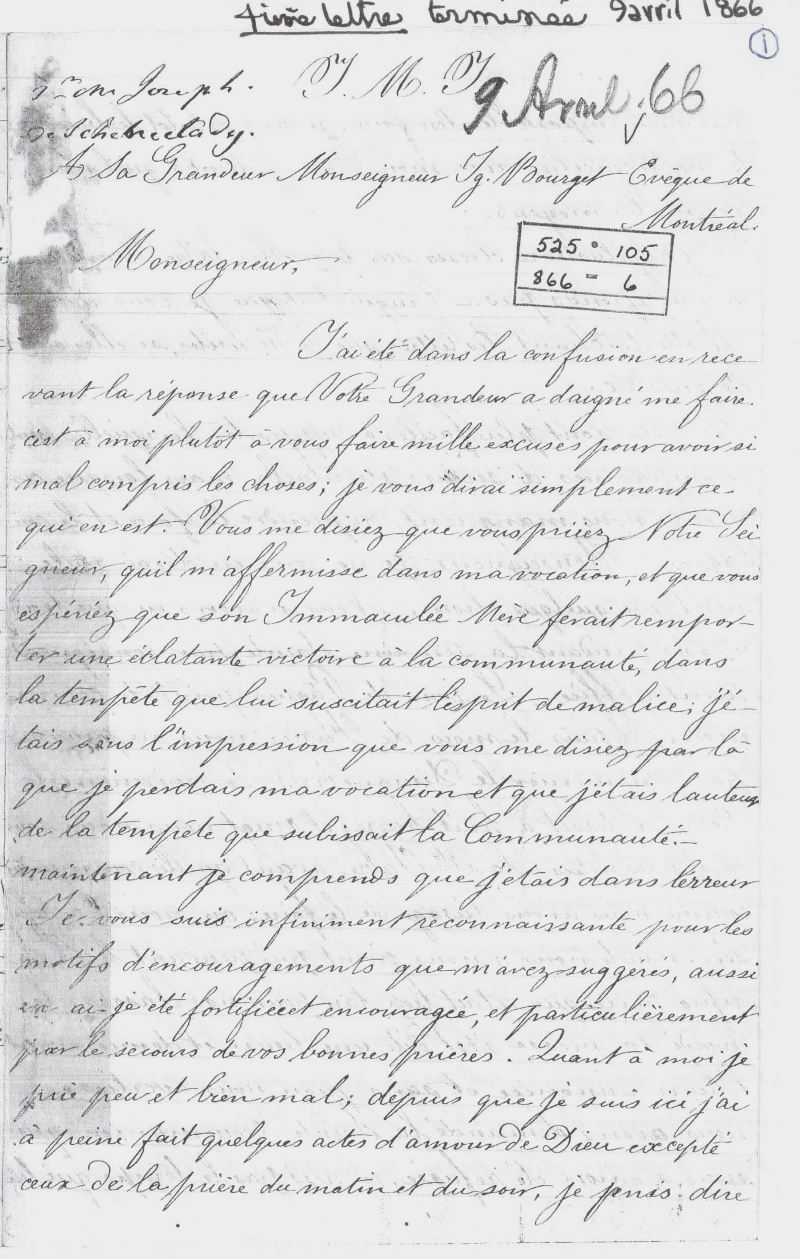 4ième lettre terminée 9 avril 1866
1
Joseph. J. M. J
9 Avril, 66
De Schenectady.
A Sa Grandeur Monseigneur Ig. Bourget Evêque de
Montréal.
525 • 105
866 - 6
Monseigneur,
J'ai été dans la confusion en rece-
vant la réponse que Votre Grandeur a daigné me faire.
c'est à moi plutôt à vous faire mille excuses pour avoir si
mal compris les choses; je vous dirai simplement ce
qui en est. Vous me disiez que vous priiez Notre Sei
gneur, qu'il m'affermisse dans ma vocation, et que vous
espériez que son Immaculée Mère ferait rempor-
ter une éclatante victoire à la communauté, dans
la tempête que lui suscitait l'esprit de malice; j'é-
tais sous l'impression que vous me disiez par là
que je perdais ma vocation et que j'étais l'auteur
de la tempête que subissait la Communauté.-
maintenant je comprends que j'étais dans l'érreur
Je vous suis infiniment reconnaissante pour les
motifs d'encouragements que m'avez suggérés, aussi
en ai-je été fortifiée et encouragée, et particulièrement
par le secours de vos bonnes prières. Quant à moi je
prie peu et bien mal; depuis que je suis ici j'ai
à peine fait quelques actes d'amour de Dieu excepté
ceux de la prière du matin et du soir, je puis dire